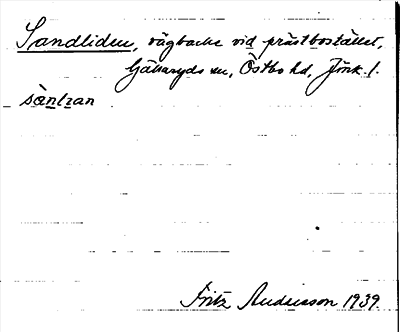 Sandliden, vägbacke vid prästbostället,
Gällaryds sn, Östbo hd, Jönk. l.
sàntran
Fritz Andersson 1939.